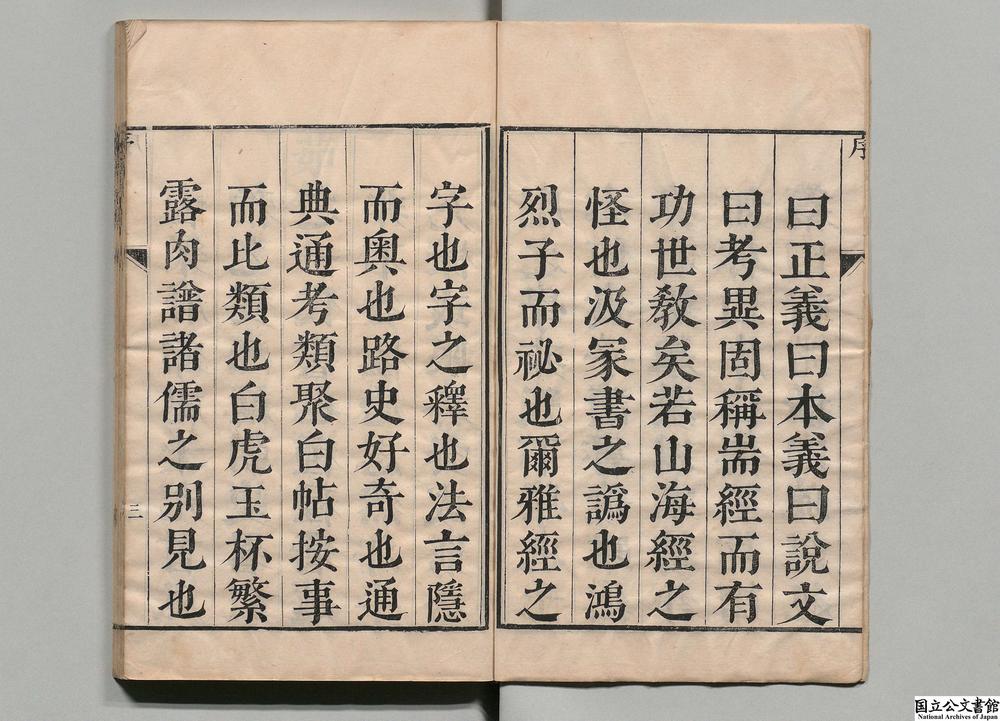 序
曰正義曰本義曰說文
曰考異固稱耑經而有
功世敎矣若山海經之
怪也汲冢書之譌也鴻
烈子而祕也爾雅經之
字也字之釋也法言隱
而奧也路史好奇也通
典通考類聚白帖按事
而比類也白虎玉杯繁
露肉譜諸儒之別見也
三
国立公文書館
National Archives of Japan